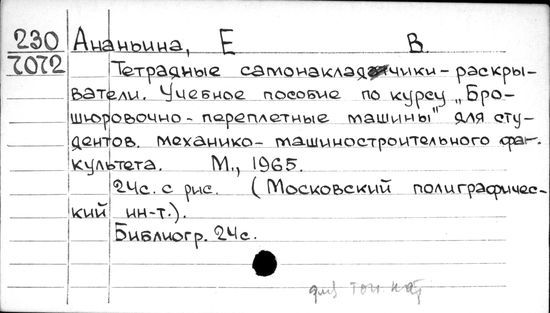 230 Ананьина, Е В
7072 Тетрадные самонакладчики-раскры-
ватели. Учебное пособие по курсу „Бро-
шюровочно-переплетные машины" для сту-
дентов механико-машиностроительного фак.
культета. М., 1965.
24с. с рис. (Московский полиграфичес-
кий ин-т.).
Библиогр. 24с.